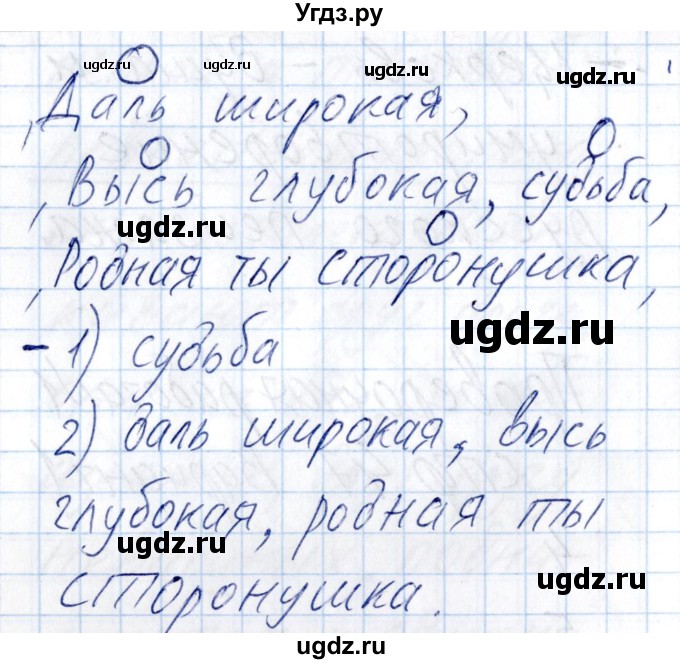 Угдз.ру
ugdz.ru ugdz.ru ugdz.ru ugdz.ru
, Даль широкая,
, Высь глубокая, судьба,
ugdz.ru ugdz.ru
, Родная ты сторонушка,
ugdz.ru ugdz.ru
- 1) судьба
2) даль широкая, высь
глубокая, родная ты
ugdz.ru ugdz.ru
сторонушка.
ugdz.ru